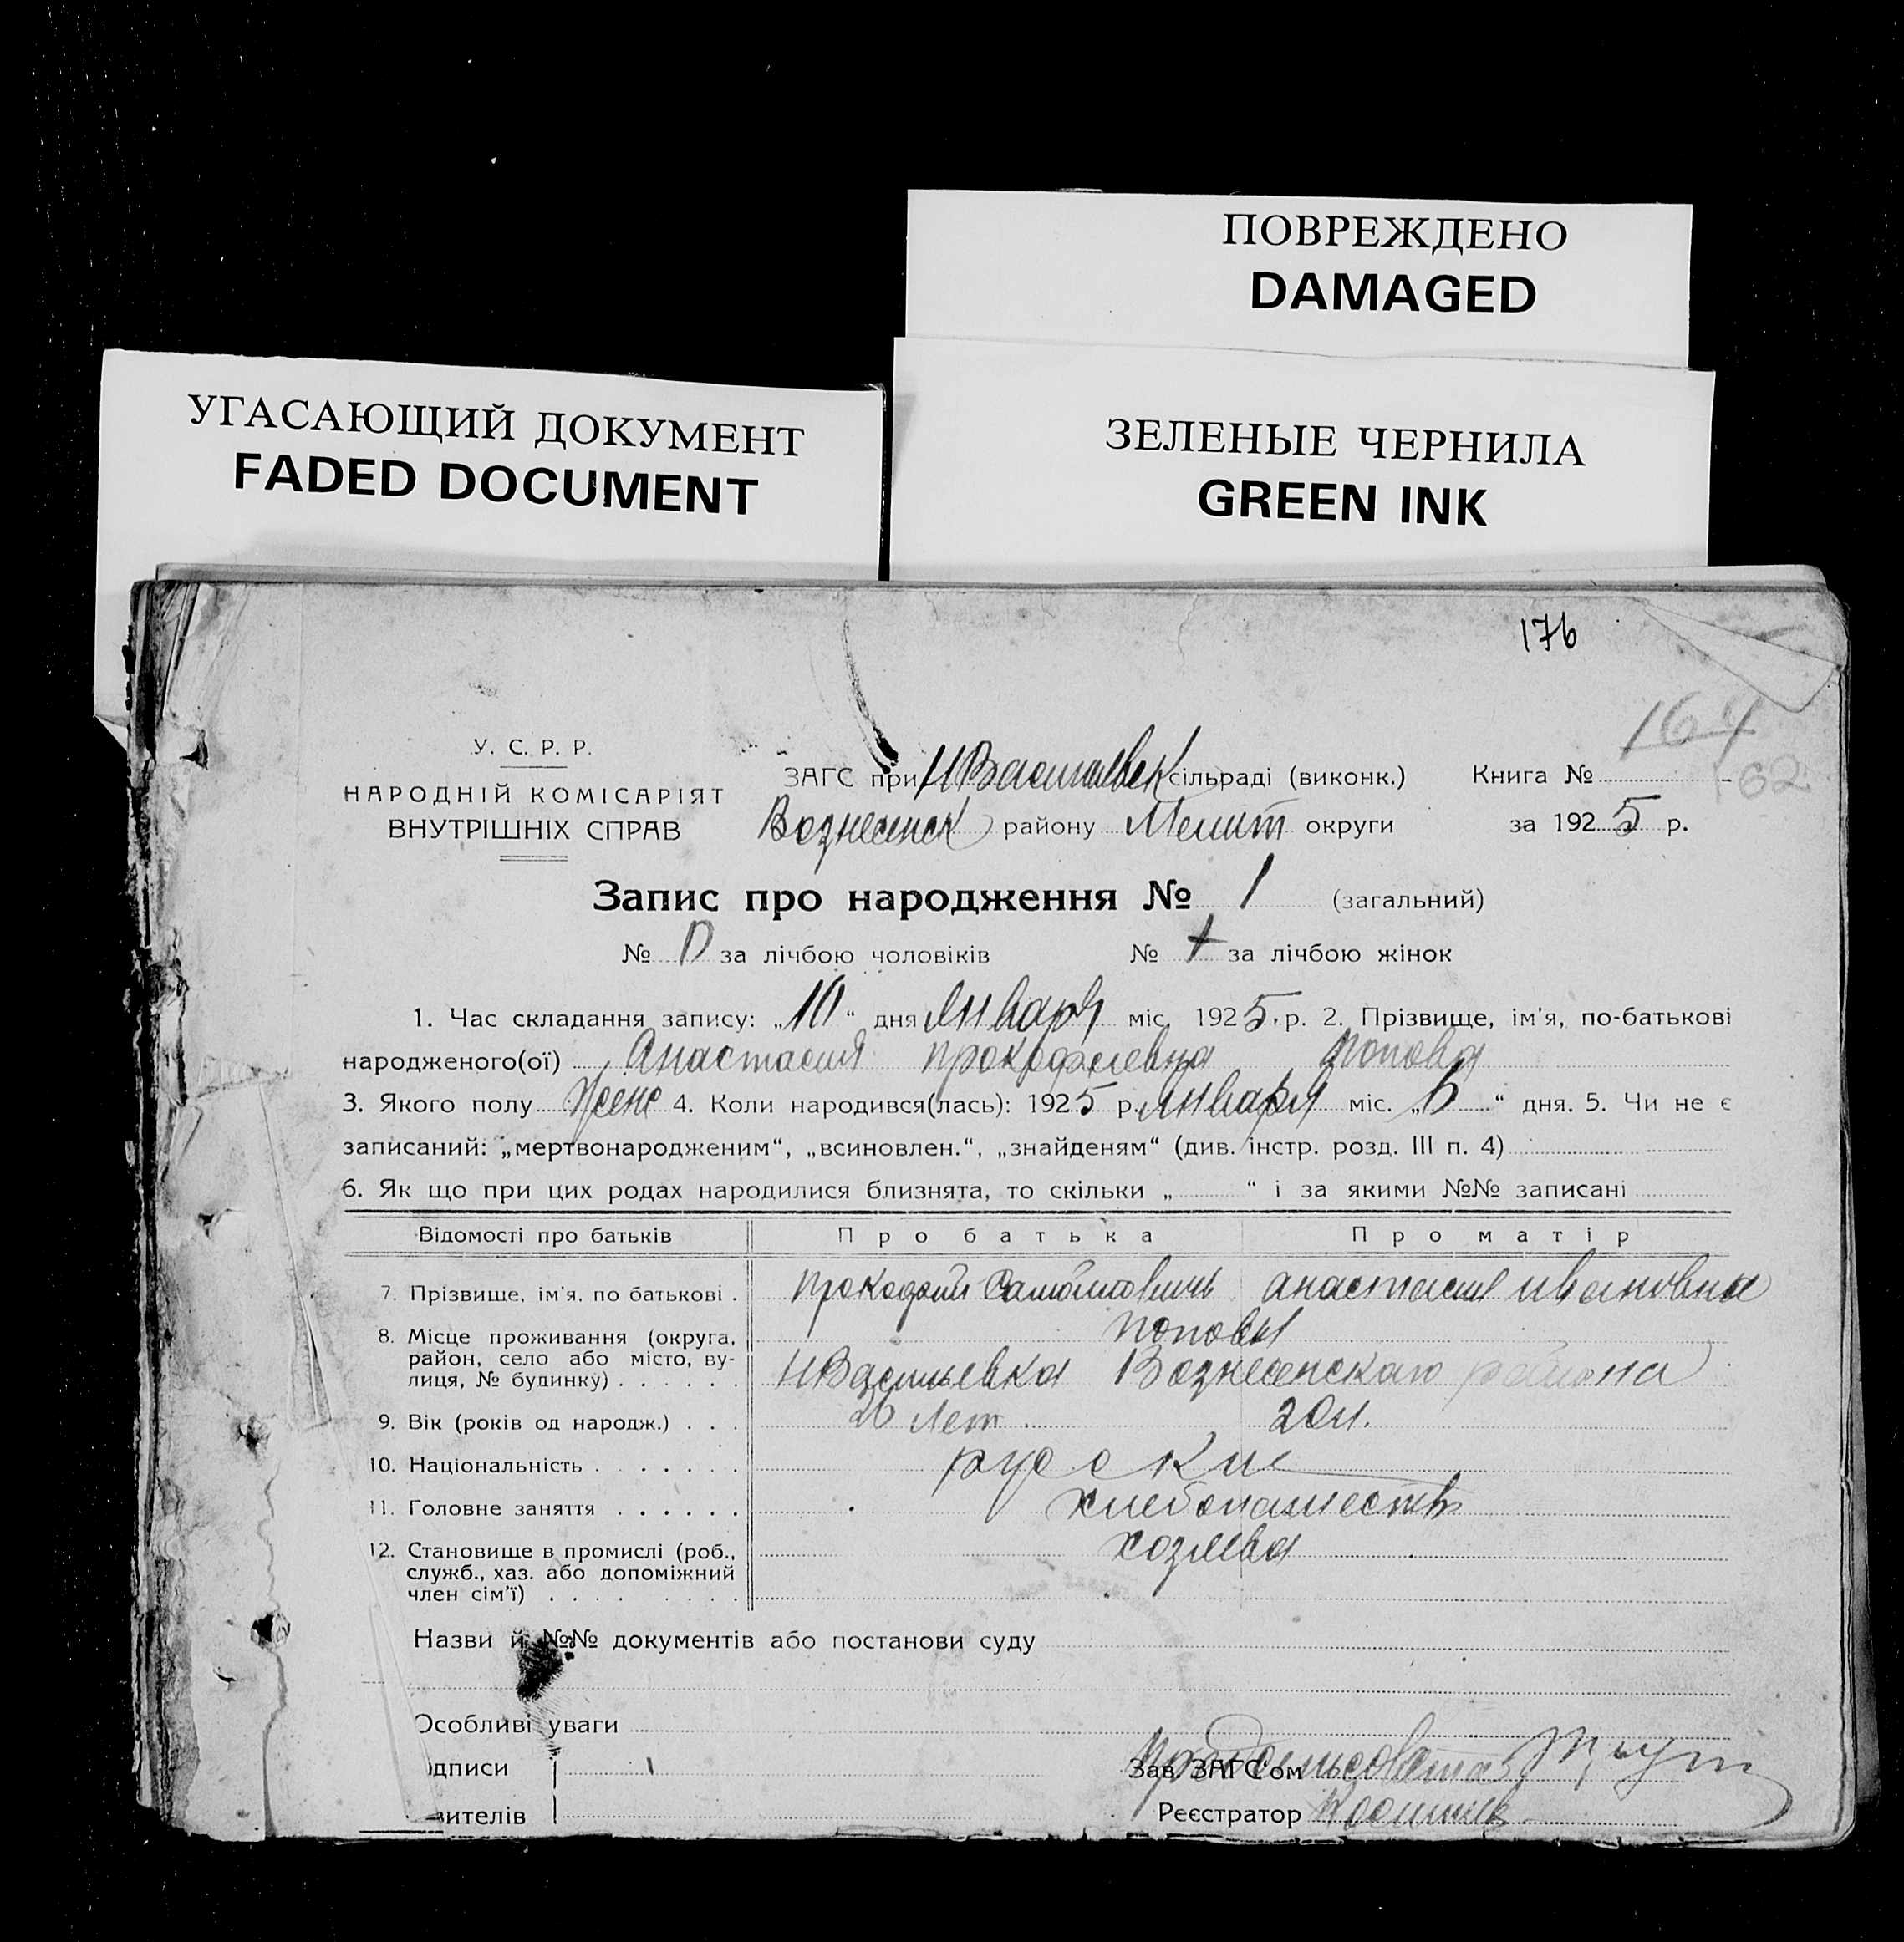 ПОВРЕЖДЕНО
DAMAGED
УГАСАЮЩИЙ ДОКУМЕНТ
FADED DOCUMENT
ЗЕЛЕНЫЕ ЧЕРНИЛА
GREEN INK
176
164
162
У. С. Р. Р.
НАРОДНІЙ КОМІСАРІЯТ
ВНУТРІШНІХ СПРАВ
ЗАГС при Н Васильевск сільраді (виконк.) Книга №
Вознесенск району Мелит округи за 1925 р.
Запис про народження № 1 (загальний)
№ за лічбою чоловіків № за лічбою жінок
1. Час складання запису: „10“ дня Января міс. 1925 р. 2. Прізвище, ім'я, по-батькові
народженого(ої) Анастасия Прокофиевна Попова
3. Якого полу Женс 4. Коли народився(лась): 1925 р. Января міс. „6“ дня. 5. Чи не є
записаний: „мертвонародженим“, „всиновлен.“, „знайденям“ (див. інстр. розд. III п. 4)
6. Як що при цих родах народилися близнята, то скільки „ “ і за якими №№ записані
Відомості про батьків Про батька Про матір
7. Прізвище, ім'я, по батькові . Прокофий Самойлович Анастасия Ивановна
Поповы
8. Місце проживання (округа,
район, село або місто, ву-
лиця, № будинку) . . . . . . Н Васильевка Вознесенского района
9. Вік (років од народж.) . . . 26 лет 20 л.
10. Національність . . . . . . . русские
11. Головне заняття . . . . . . хлебопашеств
12. Становище в промислі (роб.,
служб., хаз. або допоміжний
член сім'ї) . . . . . . . . хозяева
Назви й №№ документів або постанови суду
Особливі уваги
ідписи Зав. ЗАГС'ом Предсельсовета
вителів Реєстратор